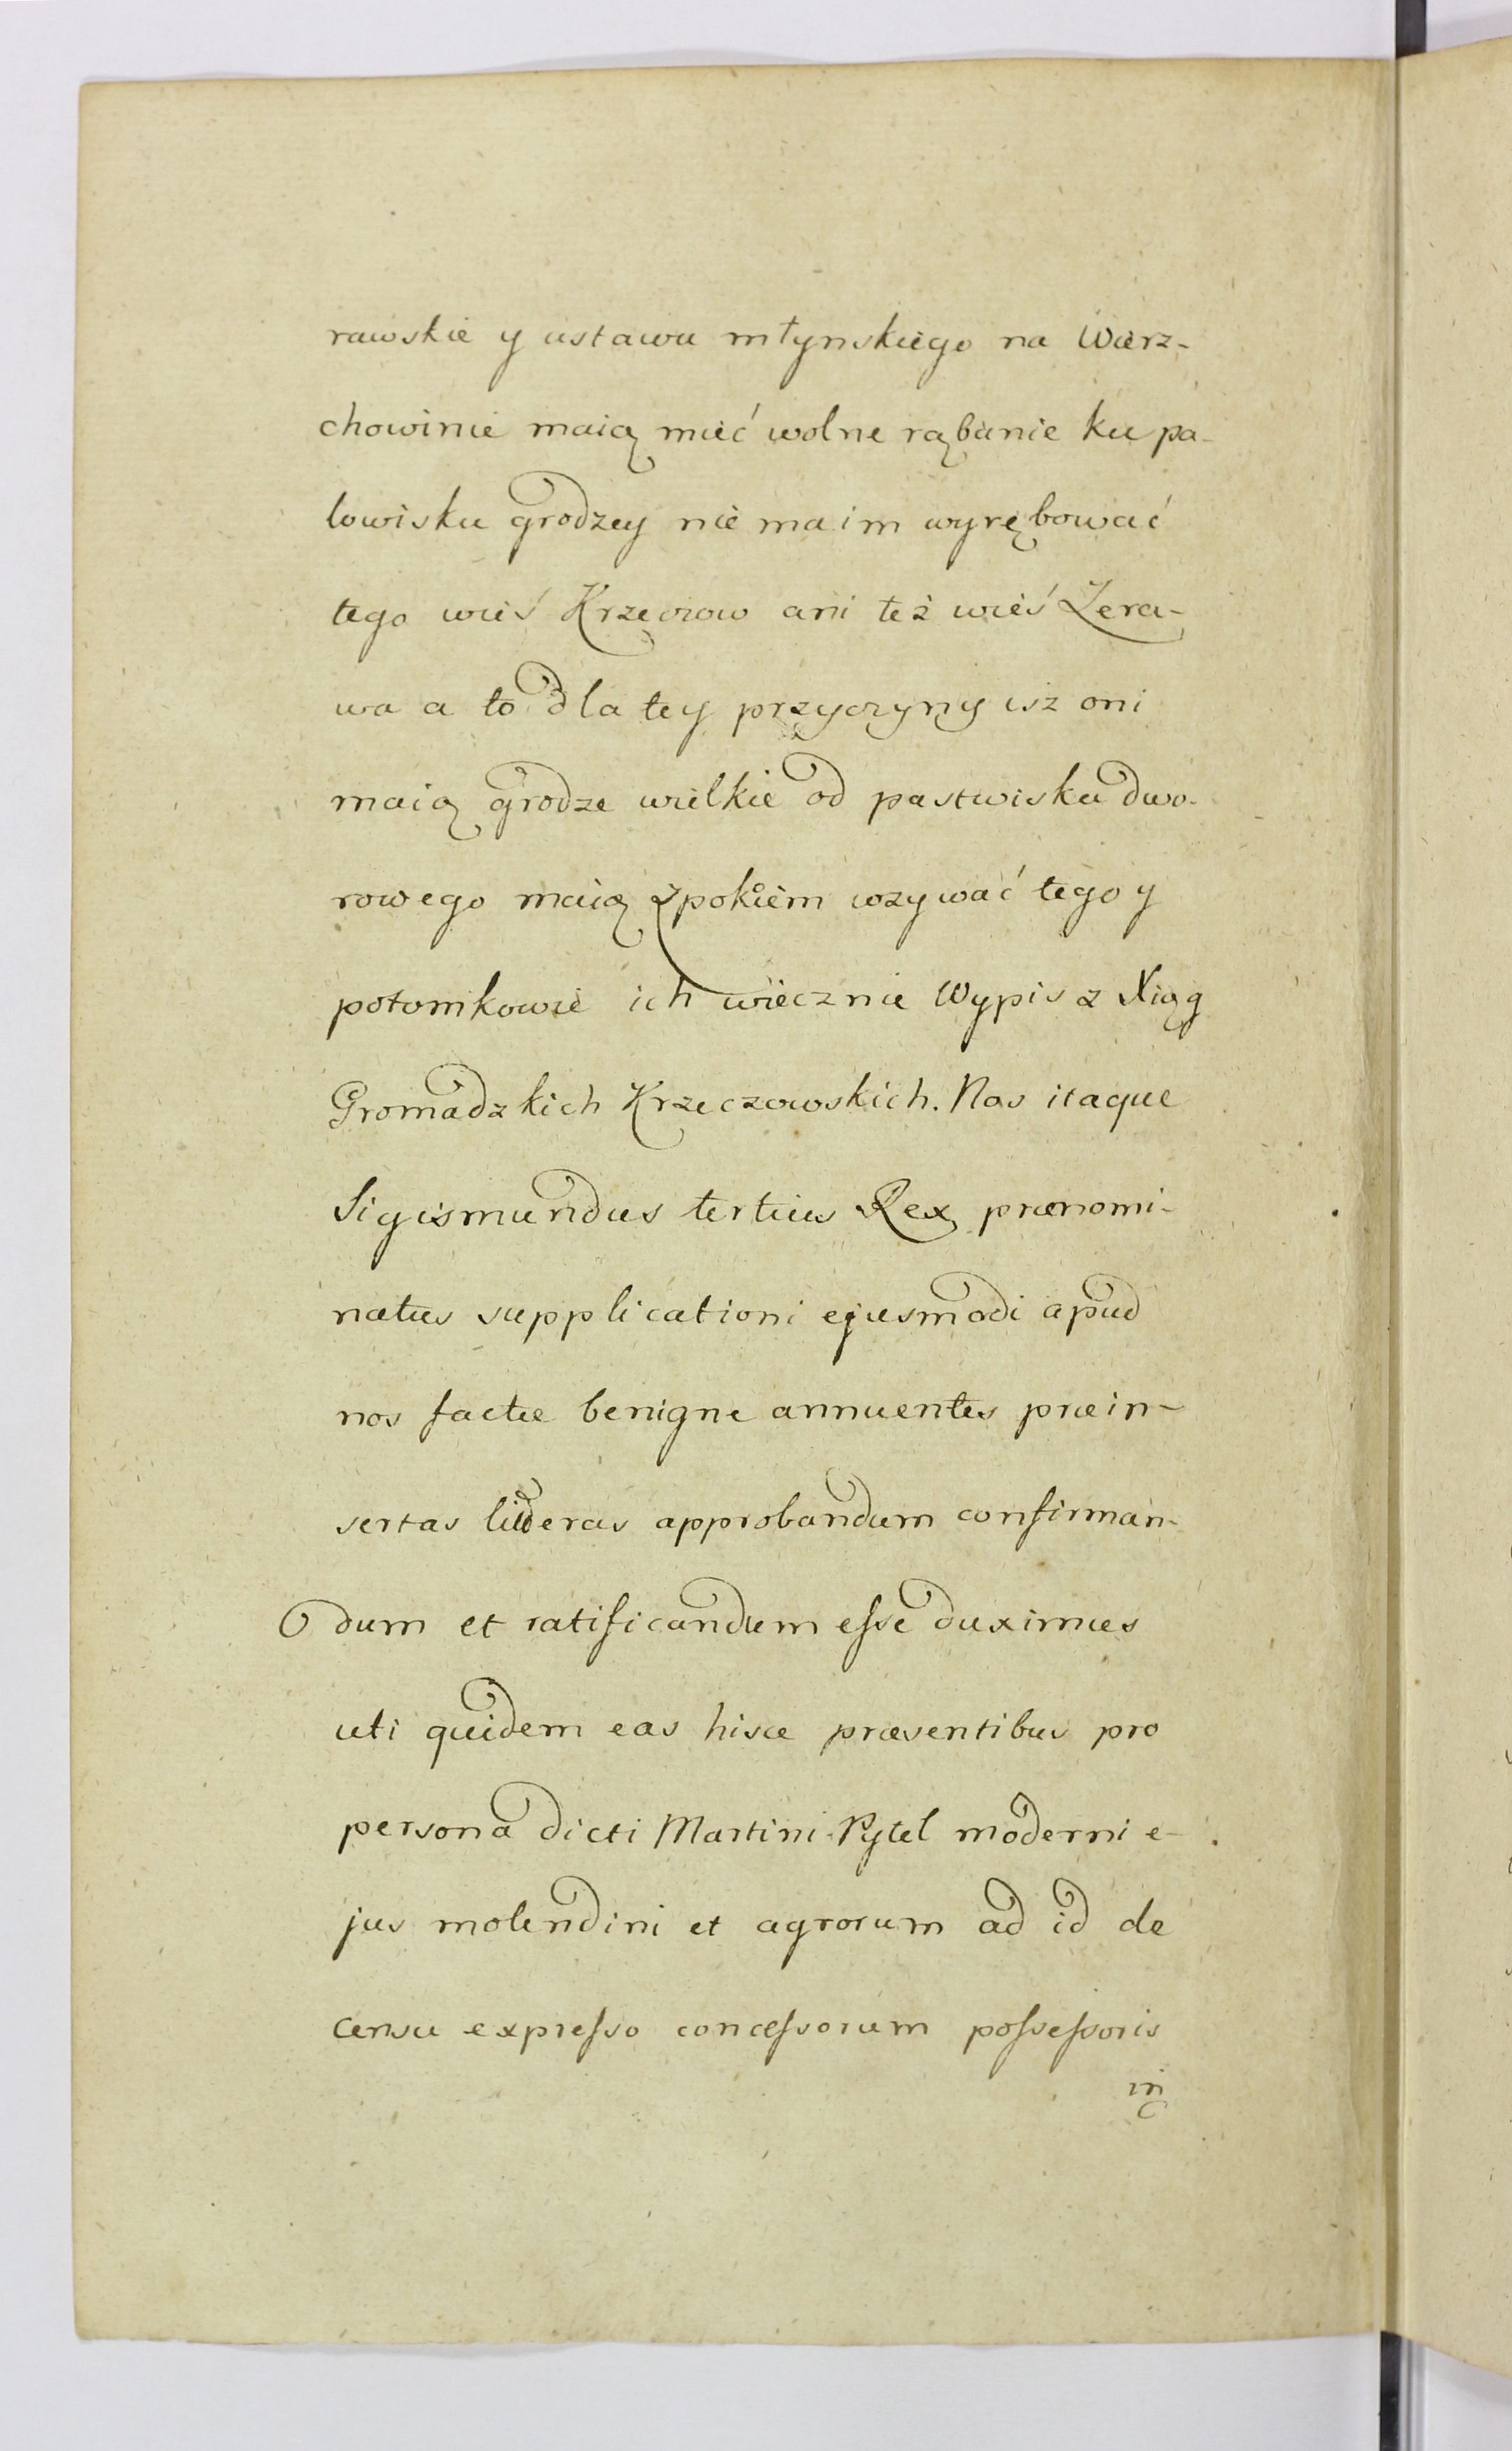 rawskie y ustawu młynskiego na Wierz-
chowinie maią mieć wolne rąbanie ku pa-
lowisku grodzey nie ma im wyrębować
tego wieś Krzęczow ani też wieś Zera-
wa a to dla tey przyczyny isz oni
maią grodze wielkie od pastwisku dwo-
rowego maią zpokiem wzywać tego y
potomkowie ich wiecznie Wypis z Xiąg
Gromadzkich Krzeczowskich. Nos itaque
Sigismundus tertius Rex prænomi-
natus supplicationi ejusmodi apud
nos factæ benigne annuentes præin-
sertas literas approbandum confirman-
dum et ratificandum eſse duximus
uti quidem eas hisce præsentibus pro
persona dicti Martini Pytel moderni e-
jus molendini et agrorum ad id de
censu expreſso conceſsorum poſseſsoris
in